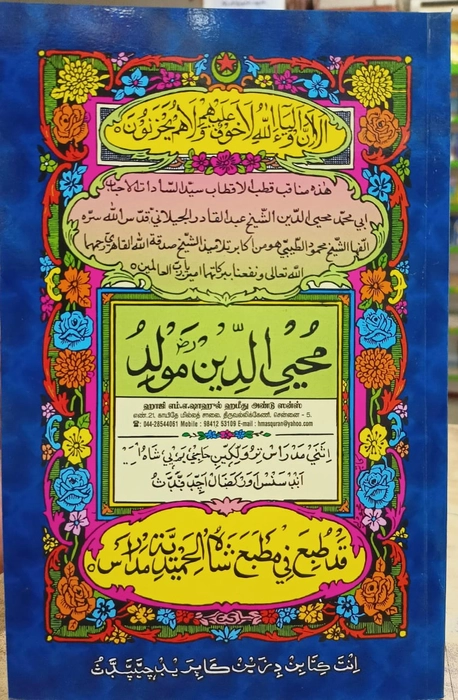 الا ان اولياء الله لا خوف عليهم ولا هم يحزنون
هذه مناقب قطب الاقطاب سيد السادات الانجاب
ابي محمد محيي الدين الشيخ عبد القادر الجيلاني قدس الله سره
الفها الشيخ محمود الطيبي هو من اكابر تلاميذ الشيخ صدقة الله القاهري رحمهما
الله تعالى ونفعنا ببركاتهما امين يا رب العالمين
محيي الدين مولد
ஹாஜி எம்.ஏ.ஷாஹுல் ஹமீது அண்டு ஸன்ஸ்
எண்.21, காயிதே மில்லத் சாலை, திருவல்லிக்கேணி, சென்னை - 5.
☎: 044-28544061 Mobile : 98412 53109 E-mail : hmasquran@yahoo.com
قد طبع في مطبع شاه الحميدية مدراس